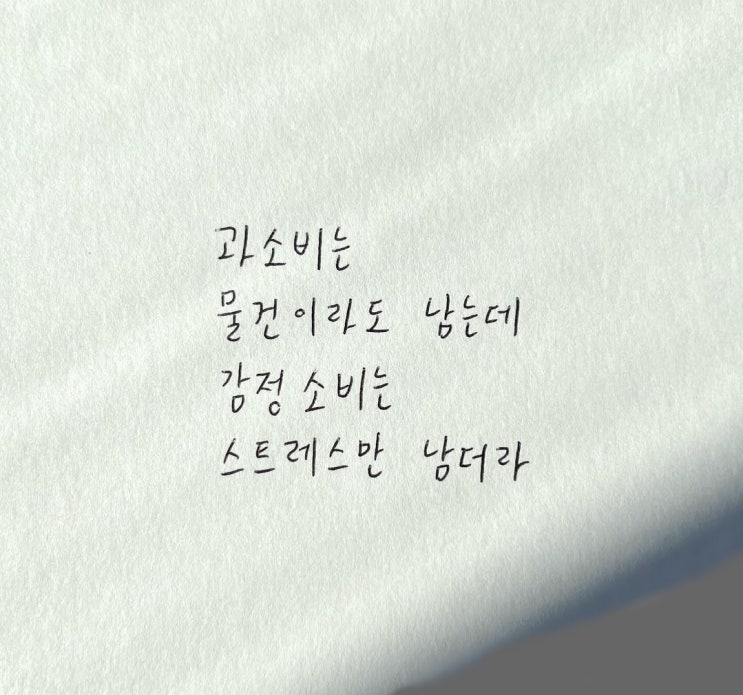 과소비는
물건이라도 남는데
감정 소비는
스트레스만 남더라